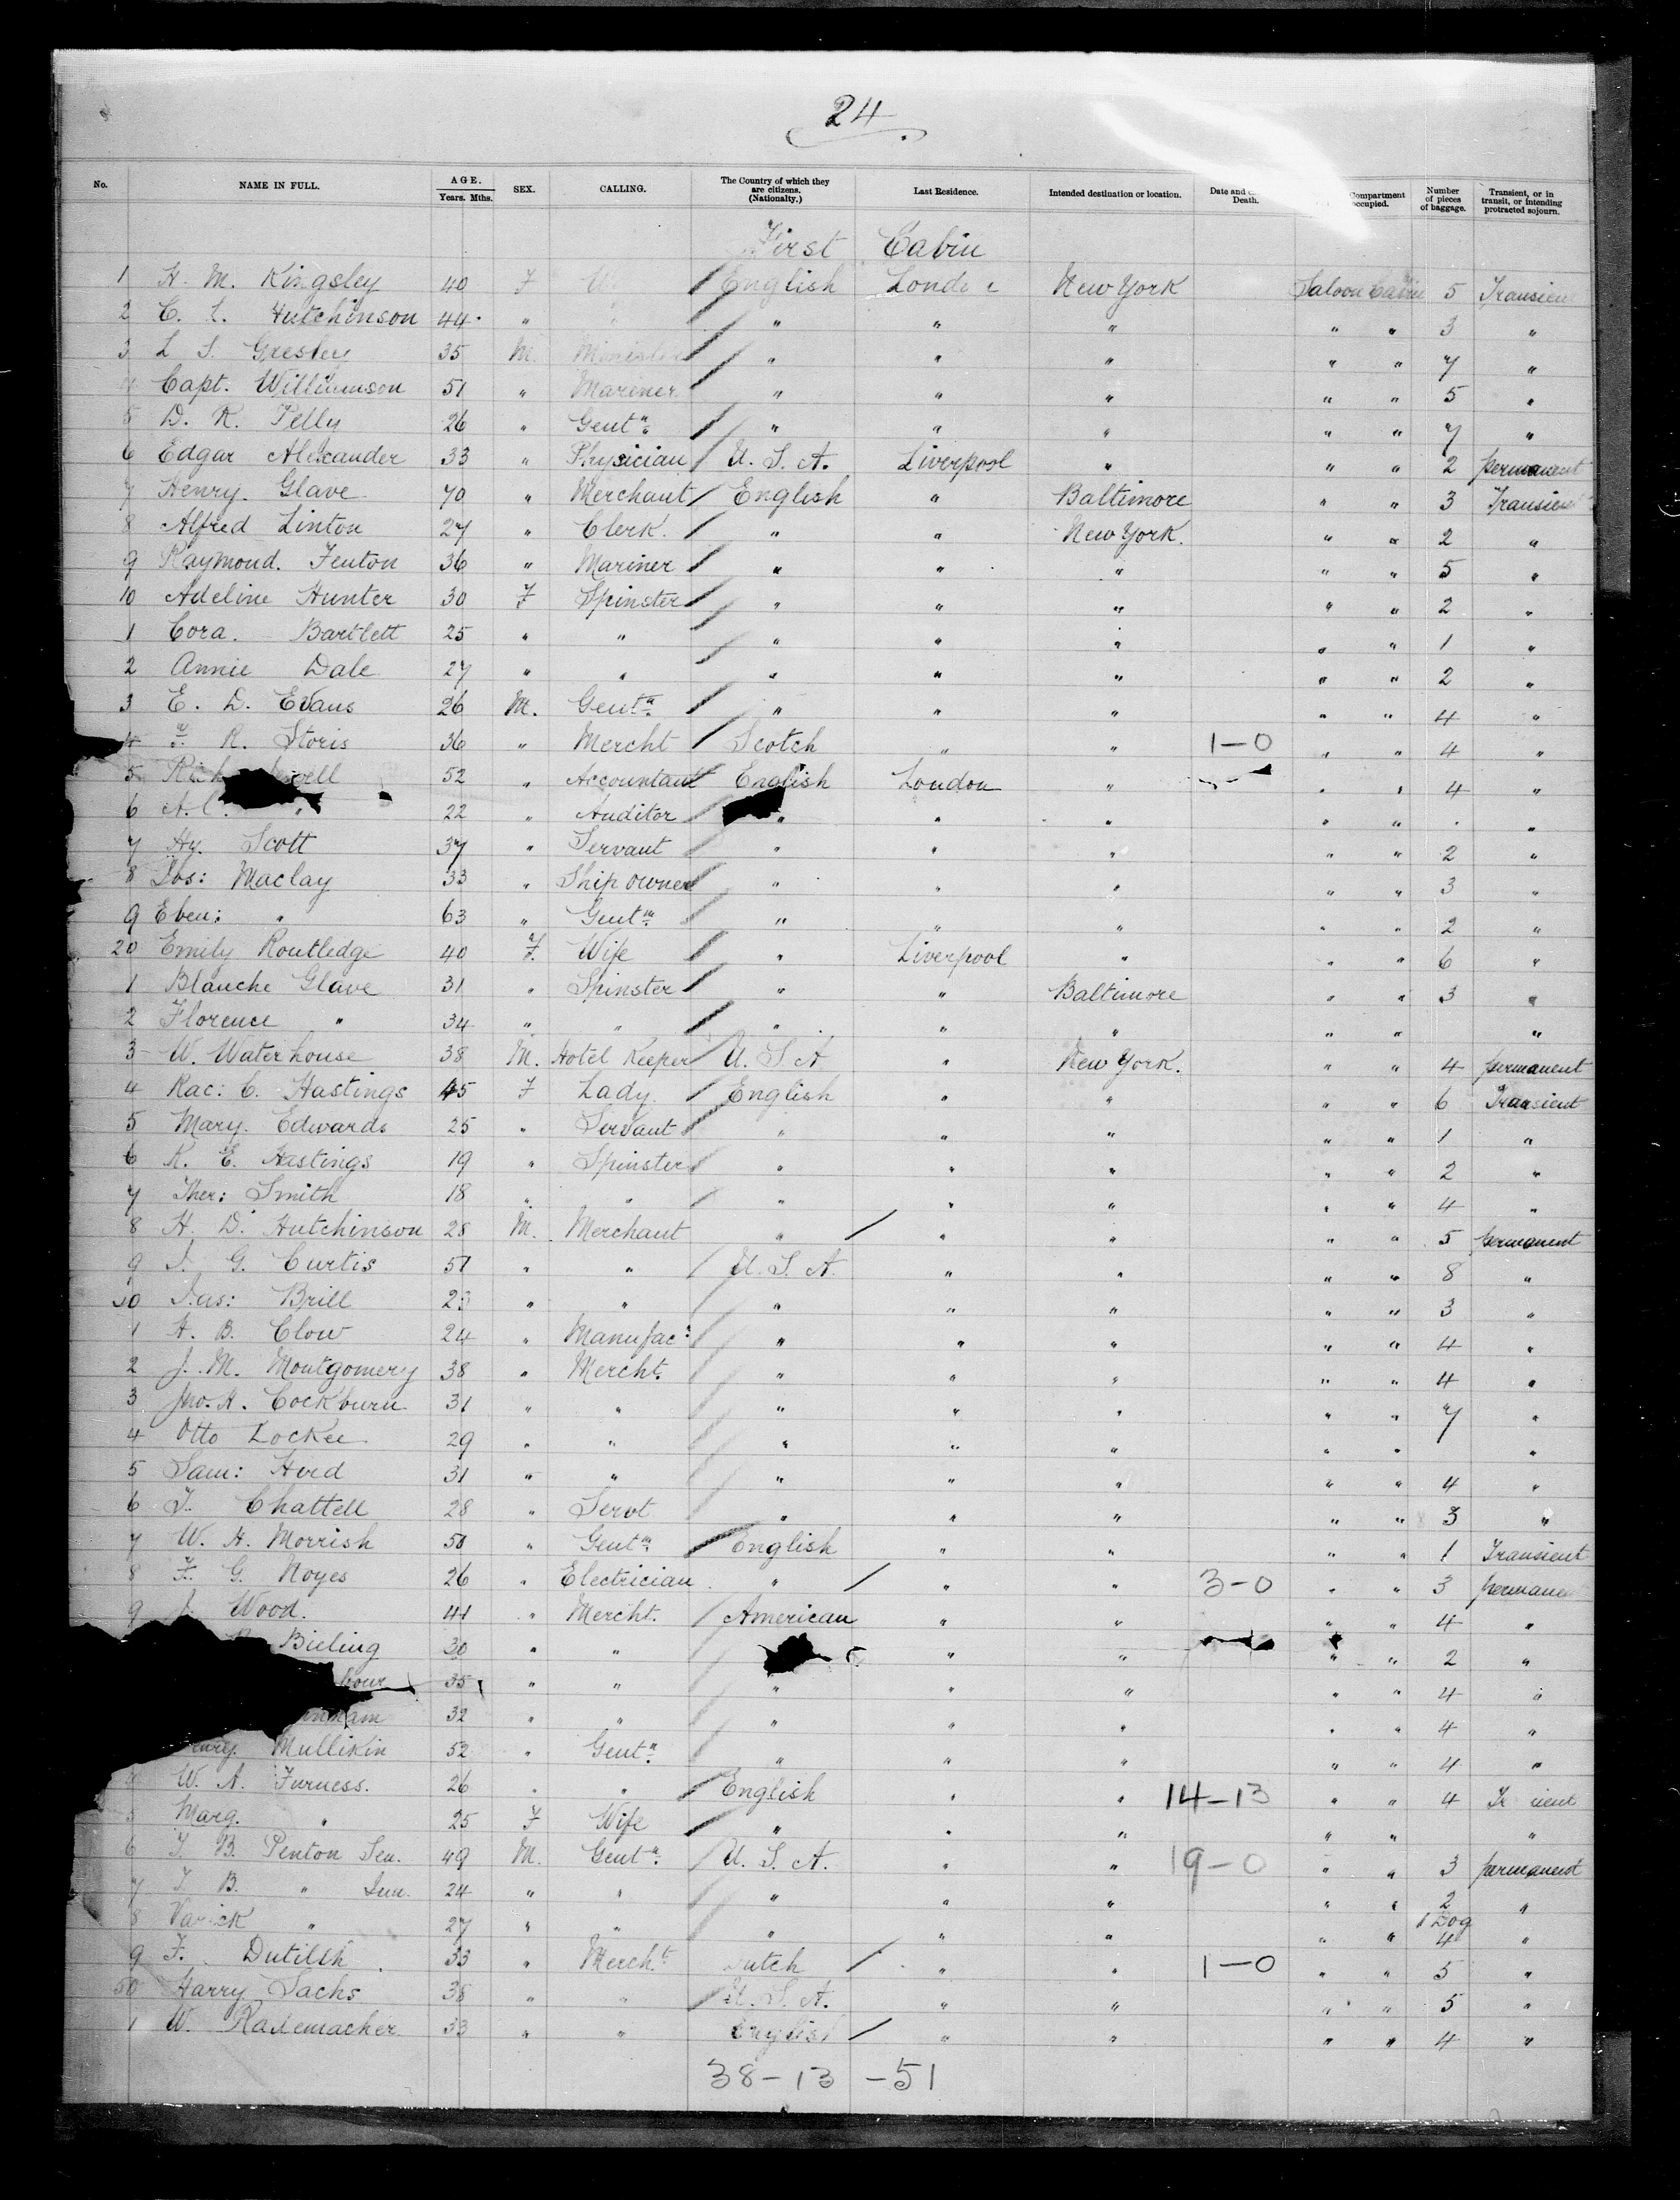 24
No. NAME IN FULL. AGE. Years. Mths. SEX. CALLING. The Country of which they are citizens. (Nationalty.) Last Residence. Intended destination or location. Date and Death. Compartment occupied. Number of pieces of baggage. Transient, or in transit, or intending protracted sojourn.
First Cabin
1 H. M. Kingsley 40 F English New York Saloon Cabin 5 Transient
2 C. L. Hutchinson 44 " " " " " " 3 "
3 L S. Gresley 35 M. Minister " " " " " 7 "
Capt. Williamson 51 " Mariner " " " " " 5 "
5 D. R. Pelly 26 " Gentn. " " " " " 7 "
6 Edgar Alexander 33 " Physician U. S. A. Liverpool " " " 2 permanent
7 Henry. Glave 70 " Merchant English " Baltimore " " 3 Transient
8 Alfred Linton 27 " Clerk. " " New York. " " 2 "
9 Raymond. Fenton 36 " Mariner " " " " " 5 "
10 Adeline Hunter 30 F Spinster " " " " " 2 "
1 Cora. Bartlett 25 " " " " " " " 1 "
2 Annie Dale 27 " " " " " " " 2 "
3 E. D. Evans 26 M. Gentn. " " " " " 4 "
4 R. Storis 36 " Mercht Scotch " " 1-0 " " 4 "
5 52 " Accountant English London " " " 4 "
6 A. C. " 22 " Auditor " " " " " "
7 Hy. Scott 37 " Servant " " " " " 2 "
8 Jos: Maclay 33 " Ship owner " " " " " 3 "
9 Eben: " 63 " Gentm. " " " " " 2 "
20 Emily Routledge 40 F. Wife " Liverpool " " " 6 "
1 Blanche Glave 31 " Spinster " " Baltimore " " 3 "
2 Florence " 34 " " " " " " " "
3 W. Waterhouse 38 M. Hotel Keeper U. S A " New York. " " 4 permanent
4 Rac: C. Hastings 45 F Lady. English " " " " 6 Transient
5 Mary. Edwards 25 " Servant " " " " " 1 "
6 K. E. Hastings 19 " Spinster " " " " " 2 "
7 Ther: Smith 18 " " " " " " " 4 "
8 H. D. Hutchinson 28 M. Merchant " " " " " 5 permanent
9 J. G. Curtis 57 " " U. S. A. " " " " 8 "
30 Jas: Brill " " " " " " " 3 "
1 H. B. Clow 24 " Manufac: " " " " " 4 "
2 J. M. Montgomery 38 " Mercht. " " " " " 4 "
3 Jno. H. Cockburn 31 " " " " " " " 7 "
4 Otto Lockee 29 " " " " " " " "
5 Sam: Herd 31 " " " " " " " 4 "
6 T. Chattell 28 " Servt " " " " " 3 "
7 W. H. Morrish 50 " Gentm. English " " " " 1 Transient
8 F. G. Noyes 26 " Electrician. " " " 3-0 " " 3 permanent
9 J. Wood. 41 " Mercht. American " " " " 4 "
Bieling 30 " " " " " " 2 "
35 " " " " " " " 4 "
32 " " " " " " " 4 "
Henry. Mullikin 52 " Gentn. " " " " " 4 "
4 W. A. Furness. 26 " " English " " 14-13 " " 4
5 Marg. " 25 F Wife " " " " " "
6 T. B. Penton Sen. 49 M. Gentn. U. S. A. " " 19-0 " " 3 permanent
7 T. B. " Jun. 24 " " " " " " " 2 "
1 Dog
8 Varick " 27 " " " " " " " 4 "
9 F. Dutilth. 33 " Mercht. Dutch " " 1-0 " " 5 "
50 Harry Sachs 38 " " U. S. A. " " " " 5 "
1 W. Rademacher 33 " " English " " " " 4 "
38-13 -51